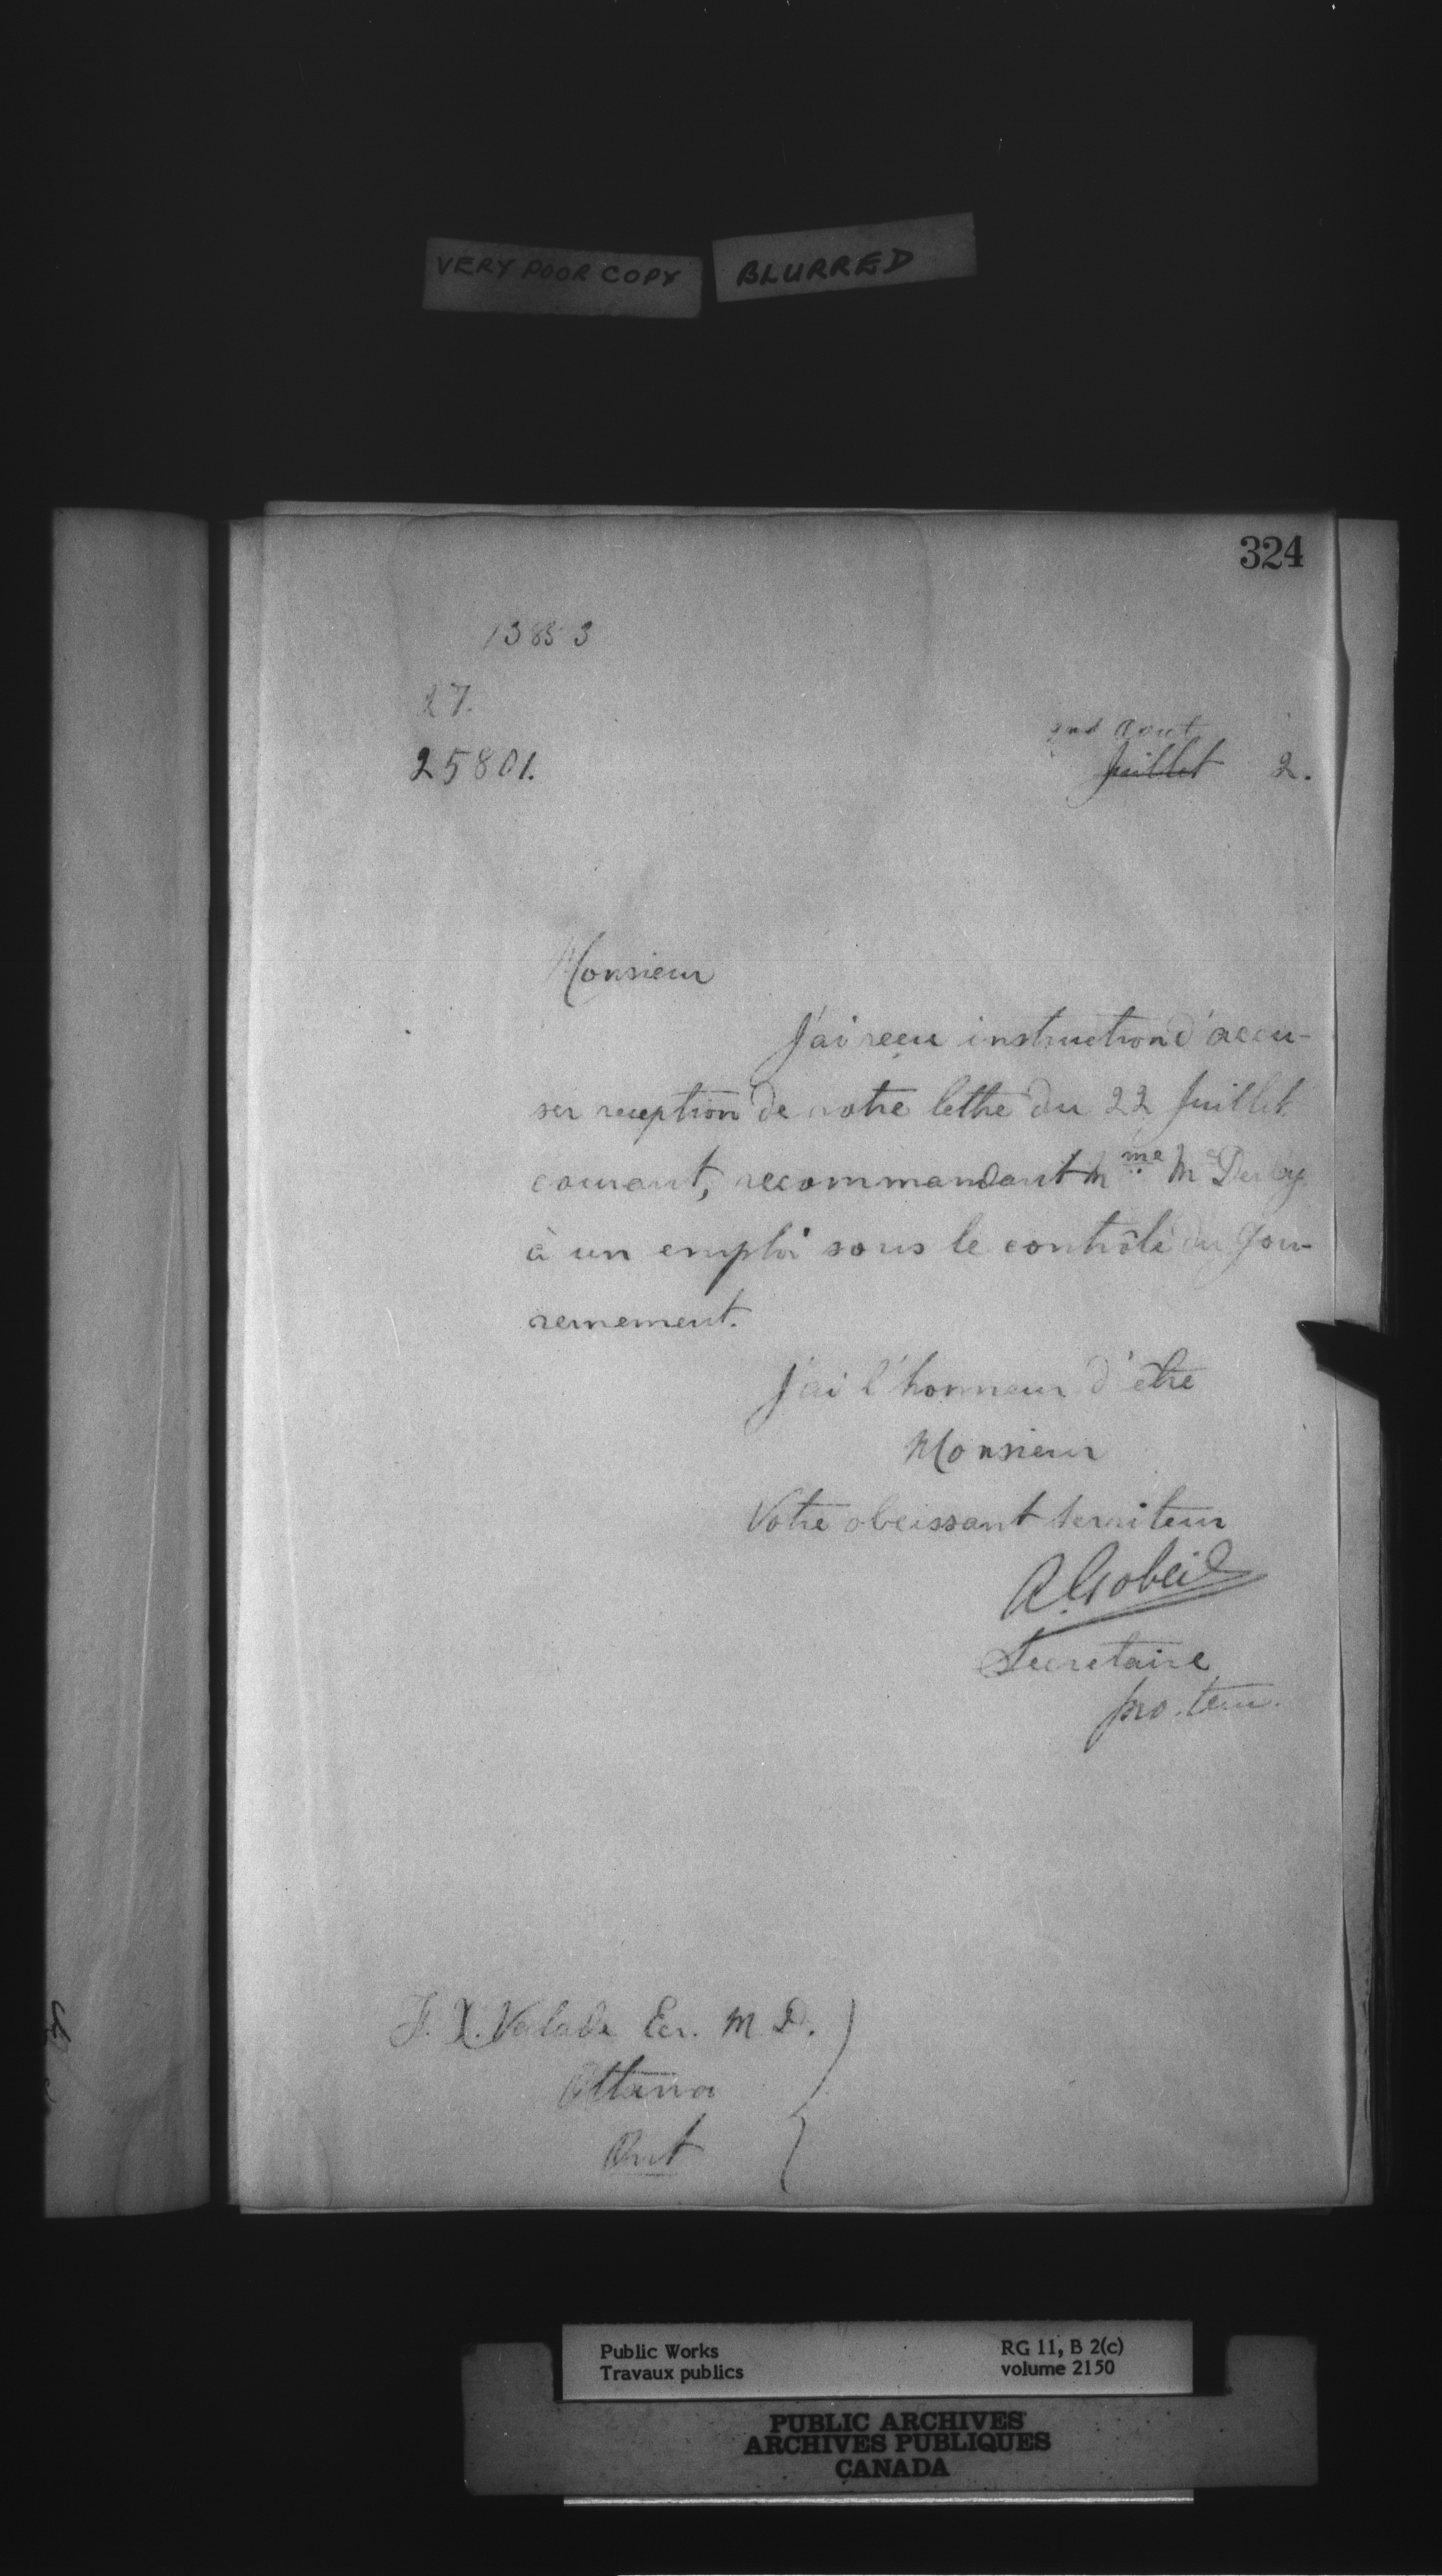 VERY POOR COPY BLURRED
324
13853
27.
25801.
2nd Aout
Juillet 2.
Monsieur
J'ai reçu instruction d'accu-
ser reception de votre lettre du 22 Juillet
courant, recommandant Mme Mc
à un emploi sous le contrôle du Gou-
vernement.
J'ai l'honneur d'être
Monsieur
Votre obeissant serviteur
A. Gobeil
Secretaire
pro. tem.
F. X. Valade Ecr. M D.
Ottawa
Ont
Public Works RG 11, B 2(c)
Travaux publics volume 2150
PUBLIC ARCHIVES
ARCHIVES PUBLIQUES
CANADA